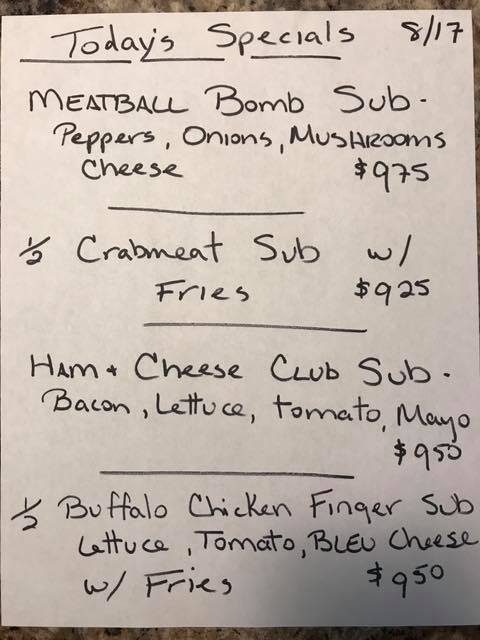 Today's Specials 8/17
MEATBALL Bomb Sub -
Peppers, Onions, MUSHROOMS
Cheese $975
1/2 Crabmeat Sub w/
Fries $925
HAM + Cheese CLUB Sub -
Bacon, Lettuce, tomato, Mayo
$950
1/2 Buffalo Chicken Finger Sub
Lettuce, Tomato, BLEU Cheese
w/ Fries $950